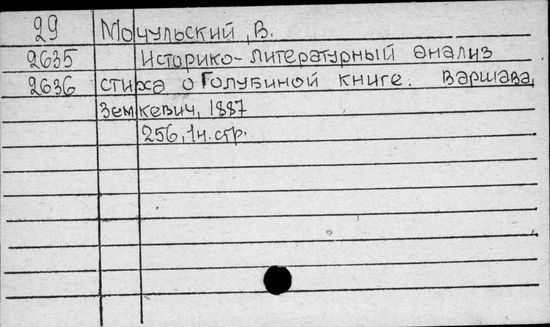 29 Мочульский, В.
2635 Историко-литературный анализ
2636 стиха о Голубиной книге. Варшава,
Земкевич, 1887
256, 1н. стр.